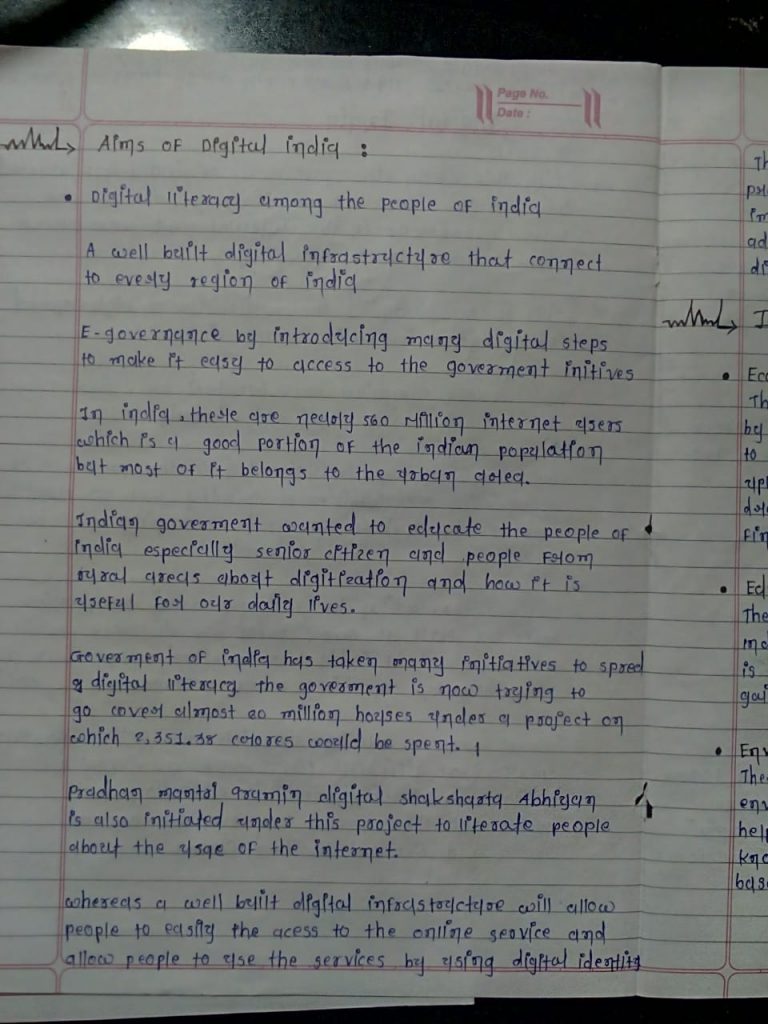 Page No.
Date :
Aims of Digital india :
• Digital literacy among the people of india
A well built digital infrastructure that connect
to every region of india
E-governance by introducing many digital steps
to make it easy to access to the goverment initives
In india, there are nearly 560 Million internet users
which is a good portion of the indian population
but most of it belongs to the urban area.
Indian goverment wanted to educate the people of
india especially senior citizen and people from
rural areas about digitization and how it is
useful for our daily lives.
Goverment of india has taken many initiatives to spred
a digital literacy the goverment is now trying to
go cover almost 20 million houses under a project on
which 2,351.38 crores would be spent.
Pradhan mantri gramin digital shaksharta Abhiyan
is also initiated under this project to literate people
about the usae of the internet.
whereas a well built digital infrastructure will allow
people to easily the acess to the online service and
allow people to use the services by using digital identity
Th
pr
im
ad
di
I
• Eco
Th
by
to
upl
Fin
• Ed
The
is
gai
• Env
The
env
help
kno
base